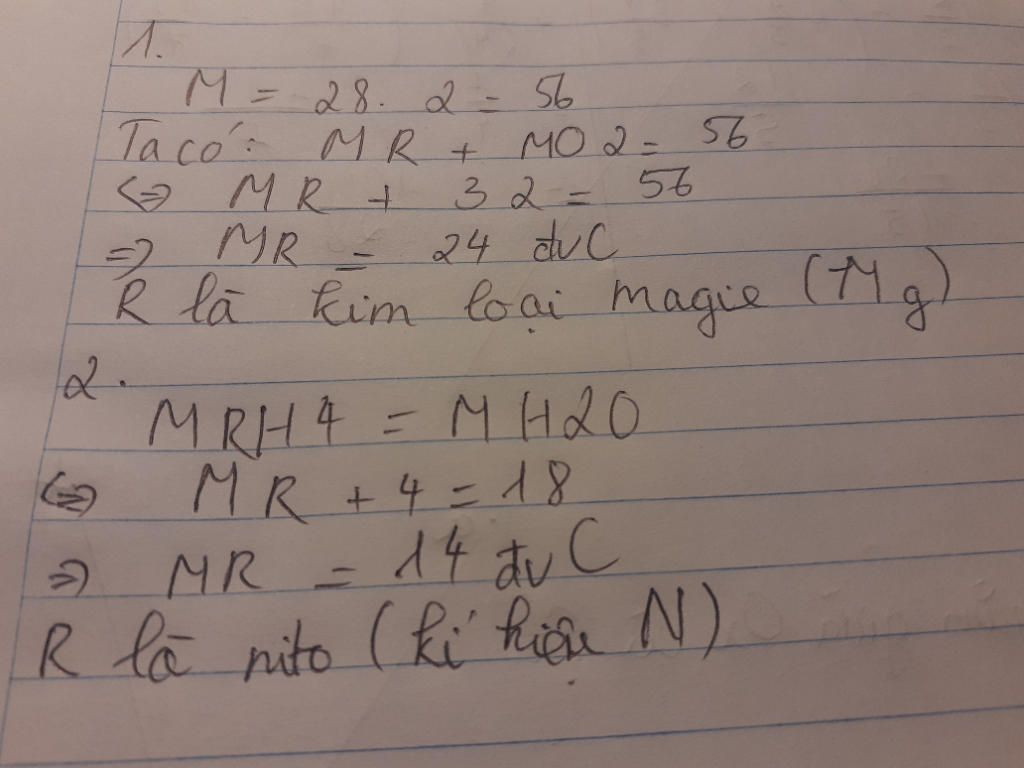 1.
M = 28. 2 = 56
Ta có: MR + MO2 = 56
<=> MR + 32 = 56
=> MR = 24 đvC
R là kim loại magie (Mg)
2.
MRH4 = MH2O
<=> MR + 4 = 18
=> MR = 14 đvC
R là nito (kí hiệu N)